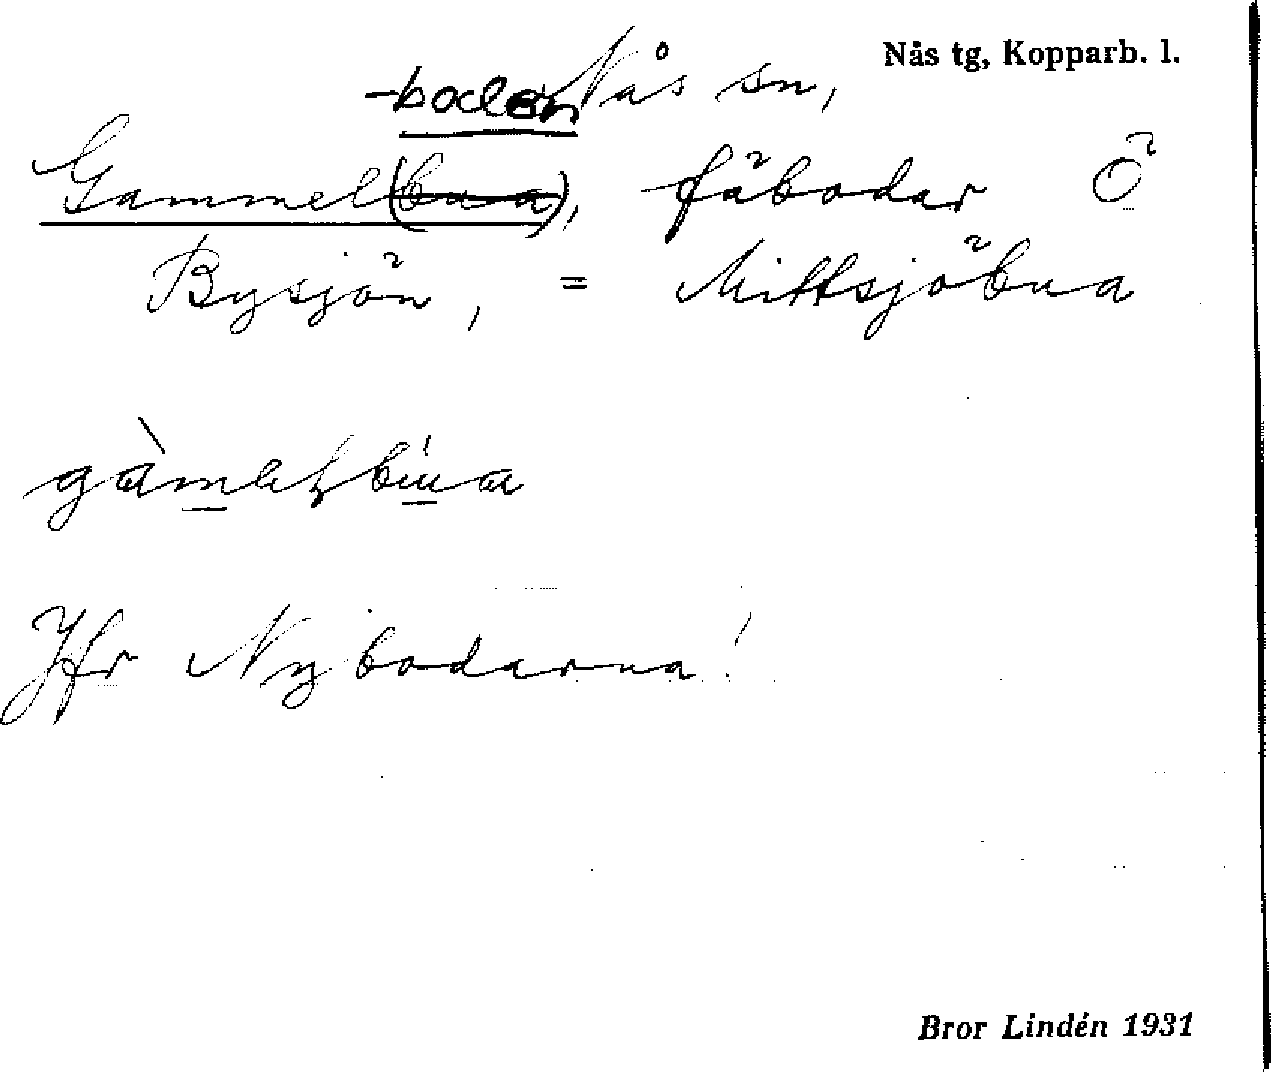 Nås tg, Kopparb. l.
-boden Nås sn,
Gammel(bua), fäbodar Ö
Bysjön, = Mittsjöbua
Jfr Nybodarna!
Bror Lindén 1931